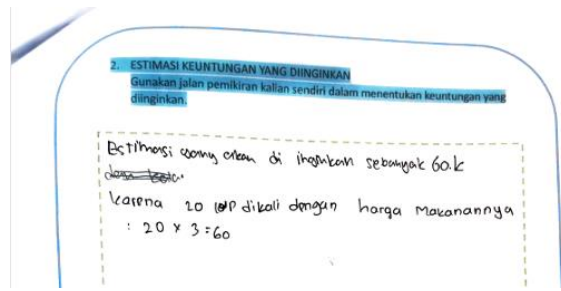 2. ESTIMASI KEUNTUNGAN YANG DIINGINKAN
Gunakan jalan pemikiran kalian sendiri dalam menentukan keuntungan yang
diinginkan.
Estimasi akan di inginkan sebanyak 60.k
karena 20 dikali dengan harga Makanannya
: 20 x 3 = 60